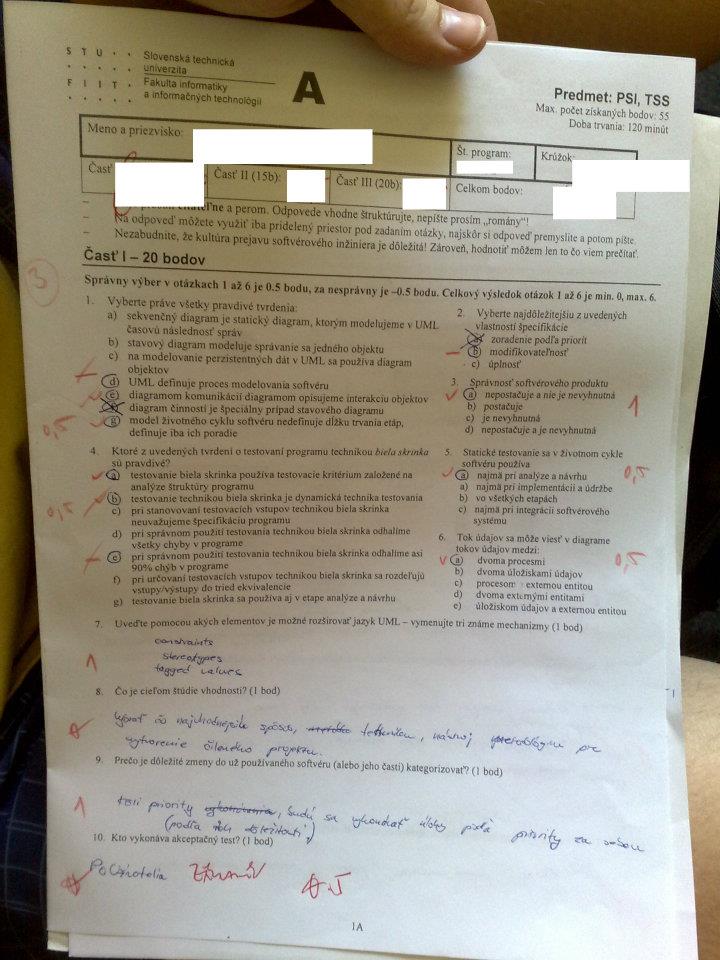 S T U
Slovenská technická
univerzita
F I I T
Fakulta informatiky
a informačných technológií
A
Predmet: PSI, TSS
Max. počet získaných bodov: 55
Doba trvania: 120 minút
Meno a priezvisko:
Št. program:
Krúžok:
Časť
Časť II (15b):
Časť III (20b):
Celkom bodov:
a perom. Odpovede vhodne štruktúrujte, nepíšte prosím „romány“!
– Na odpoveď môžete využiť iba pridelený priestor pod zadaním otázky, najskôr si odpoveď premyslite a potom píšte.
– Nezabudnite, že kultúra prejavu softvérového inžiniera je dôležitá! Zároveň, hodnotiť môžem len to čo viem prečítať.
Časť I – 20 bodov
3
Správny výber v otázkach 1 až 6 je 0.5 bodu, za nesprávny je –0.5 bodu. Celkový výsledok otázok 1 až 6 je min. 0, max. 6.
1. Vyberte práve všetky pravdivé tvrdenia:
a) sekvenčný diagram je statický diagram, ktorým modelujeme v UML
časovú následnosť správ
b) stavový diagram modeluje správanie sa jedného objektu
c) na modelovanie perzistentných dát v UML sa používa diagram
objektov
d) UML definuje proces modelovania softvéru
e) diagramom komunikácií diagramom opisujeme interakciu objektov
f) diagram činností je špeciálny prípad stavového diagramu
g) model životného cyklu softvéru nedefinuje dĺžku trvania etáp,
definuje iba ich poradie
0,5
2. Vyberte najdôležitejšiu z uvedených
vlastností špecifikácie
a) zoradenie podľa priorít
b) modifikovateľnosť
c) úplnosť
3. Správnosť softvérového produktu
a) nepostačuje a nie je nevyhnutná
b) postačuje
c) je nevyhnutná
d) nepostačuje a je nevyhnutná
1
4. Ktoré z uvedených tvrdení o testovaní programu technikou biela skrinka
sú pravdivé?
a) testovanie biela skrinka používa testovacie kritérium založené na
analýze štruktúry programu
b) testovanie technikou biela skrinka je dynamická technika testovania
c) pri stanovovaní testovacích vstupov technikou biela skrinka
neuvažujeme špecifikáciu programu
d) pri správnom použití testovania technikou biela skrinka odhalíme
všetky chyby v programe
e) pri správnom použití testovania technikou biela skrinka odhalíme asi
90% chýb v programe
f) pri určovaní testovacích vstupov technikou biela skrinka sa rozdeľujú
vstupy/výstupy do tried ekvivalencie
g) testovanie biela skrinka sa používa aj v etape analýze a návrhu
0,5
5. Statické testovanie sa v životnom cykle
softvéru používa
a) najmä pri analýze a návrhu
a) najmä pri implementácii a údržbe
b) vo všetkých etapách
c) najmä pri integrácii softvérového
systému
0,5
6. Tok údajov sa môže viesť v diagrame
tokov údajov medzi:
a) dvoma procesmi
b) dvoma úložiskami údajov
c) procesom a externou entitou
d) dvoma externými entitami
e) úložiskom údajov a externou entitou
0,5
7. Uveďte pomocou akých elementov je možné rozširovať jazyk UML – vymenujte tri známe mechanizmy (1 bod)
constraints
stereotypes
tagged values
1
8. Čo je cieľom štúdie vhodnosti? (1 bod)
vybrať čo najvhodnejšie spôsob, techniku, nástroj metodológiu pre
vytvorenie cieleného projektu.
9. Prečo je dôležité zmeny do už používaného softvéru (alebo jeho častí) kategorizovať? (1 bod)
1
priority budú sa vykonávať úlohy podľa priority za sebou
(podľa ich dôležitosti)
10. Kto vykonáva akceptačný test? (1 bod)
Používatelia
1A